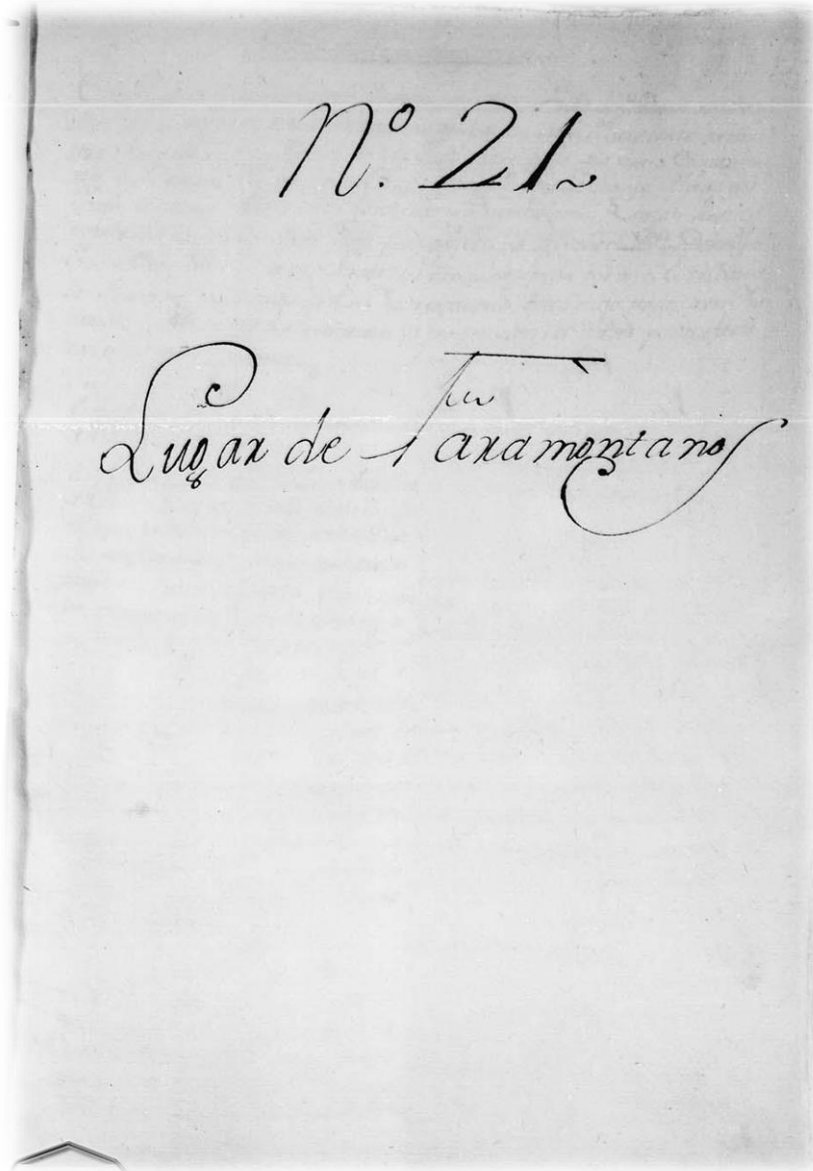 Nº. 21
Lugar de Taramontanos